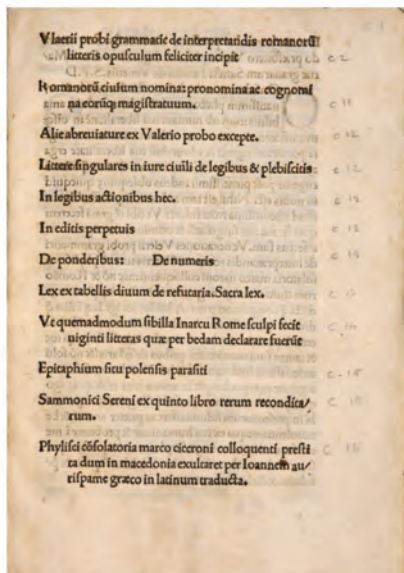 Vlaerii probi grammatic de interpretãdis romanorũ
litteris opusculum feliciter incipit
c 2
Romanorũ ciuium nomina: pronomina ac cognomi
na eorũq; magistratuum.
c 11
Alie abreuiature ex Valerio probo excepte.
c 12
Littere singulares in iure ciuili de legibus & plebiscitis
c 12
In legibus actionibus hec.
In editis perpetuis
De ponderibus: De numeris
Lex ex tabellis diuum de refutaria. Sacra lex.
Vt quemadmodum sibilla Inarcu Rome sculpi fecit
uiginti litteras quæ per bedam declarare fuerũt
Epitaphium sicu polensis parasiti
c. 15
Sammonici Sereni ex quinto libro rerum recondita/
rum.
Phylisci cõsolatoria marco ciceroni colloquenti presti
ta dum in macedonia exultaret per Ioannem au/
rispame græco in latinum traducta.